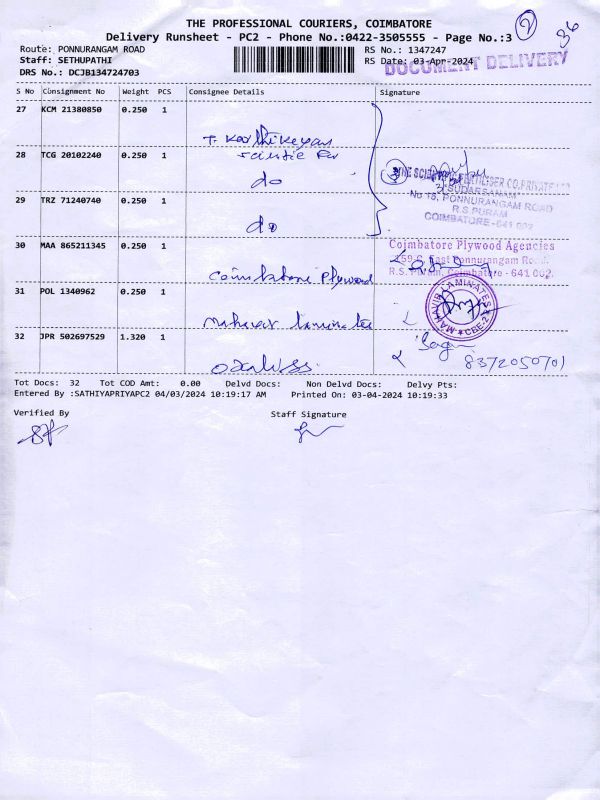 THE PROFESSIONAL COURIERS, COIMBATORE
Delivery Runsheet - PC2 - Phone No.:0422-3505555 - Page No.:3
2
36
Route: PONNURANGAM ROAD
RS No.: 1347247
Staff: SETHUPATHI
RS Date: 03-Apr-2024
DRS No.: DCJB134724703
DOCUMENT DELIVERY
S No Consignment No Weight PCS Consignee Details Signature
27 KCM 21380850 0.250 1
T. Karthikeyan
28 TCG 20102240 0.250 1
do
3
THE SCIENTIFIC FERTILISER CO.PRIVATE LTD
3, SUDARSANAM
No 18, PONNURANGAM ROAD
R.S.PURAM
COIMBATORE-641 002
29 TRZ 71240740 0.250 1
do
30 MAA 865211345 0.250 1
Coimbatore Plywood
Coimbatore Plywood Agencies
159 C, East Ponnurangam Road,
R.S. Puram, Coimbatore - 641 002.
31 POL 1340962 0.250 1
Mahavir laminates
MAHAVIR LAMINATES
CBE-2
32 JPR 502697529 1.320 1
8372050701
Tot Docs: 32 Tot COD Amt: 0.00 Delvd Docs: Non Delvd Docs: Delvy Pts:
Entered By :SATHIYAPRIYAPC2 04/03/2024 10:19:17 AM Printed On: 03-04-2024 10:19:33
Verified By
Staff Signature